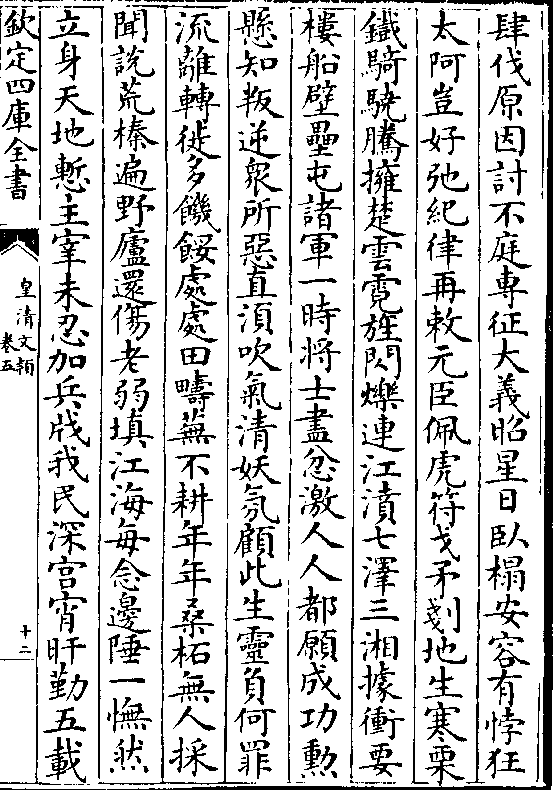 肆伐原因討不庭專征大義昭星日臥榻安容有悖狂
太阿豈好弛紀律再敕元臣佩虎符戈矛剗地生寒栗
鐡騎驍騰擁楚雲霓旌閃爍連江濆七澤三湘據衝要
樓船壁壘屯諸軍一時將士盡忿激人人都願成功勲
懸知叛逆衆所惡直湏吹氣清妖氛顧此生靈負何罪
流離轉徙多饑餒處處田疇蕪不耕年年桑柘無人採
聞説荒榛遍野廬還傷老弱填江海每念邊陲一憮然
立身天地慙主宰未忍加兵戕我民深宫宵旰勤五載
欽定四庫全書
皇清文頴
卷五
十二